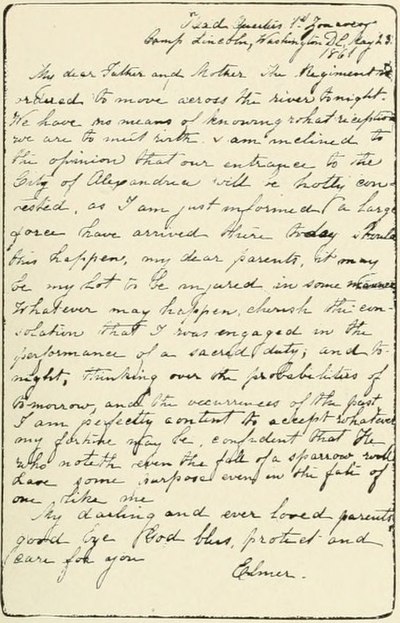 Head Quarters 1st Zouaves
Camp Lincoln, Washington D.C. May 23
1861
My dear Father and Mother The Regiment is
ordered to move across the river tonight
We have no means of knowing what reception
we are to meet with. I am inclined to
the opinion that our entrance to the
City of Alexandria will be hotly con-
tested, as I am just informed a large
force have arrived there today Should
this happen, my dear parents, it may
be my lot to be injured in some manner
Whatever may happen, cherish the con-
solation that I was engaged in the
performance of a sacred duty; and to-
night, thinking over the probabilities of
tomorrow, and the occurrences of the past
I am perfectly content to accept whatever
my fortune may be, confident that He
who noteth even the fall of a sparrow will
have some purpose even in the fate of
one like me
My darling and ever loved parents
good bye God bless, protect and
care for you
Elmer.